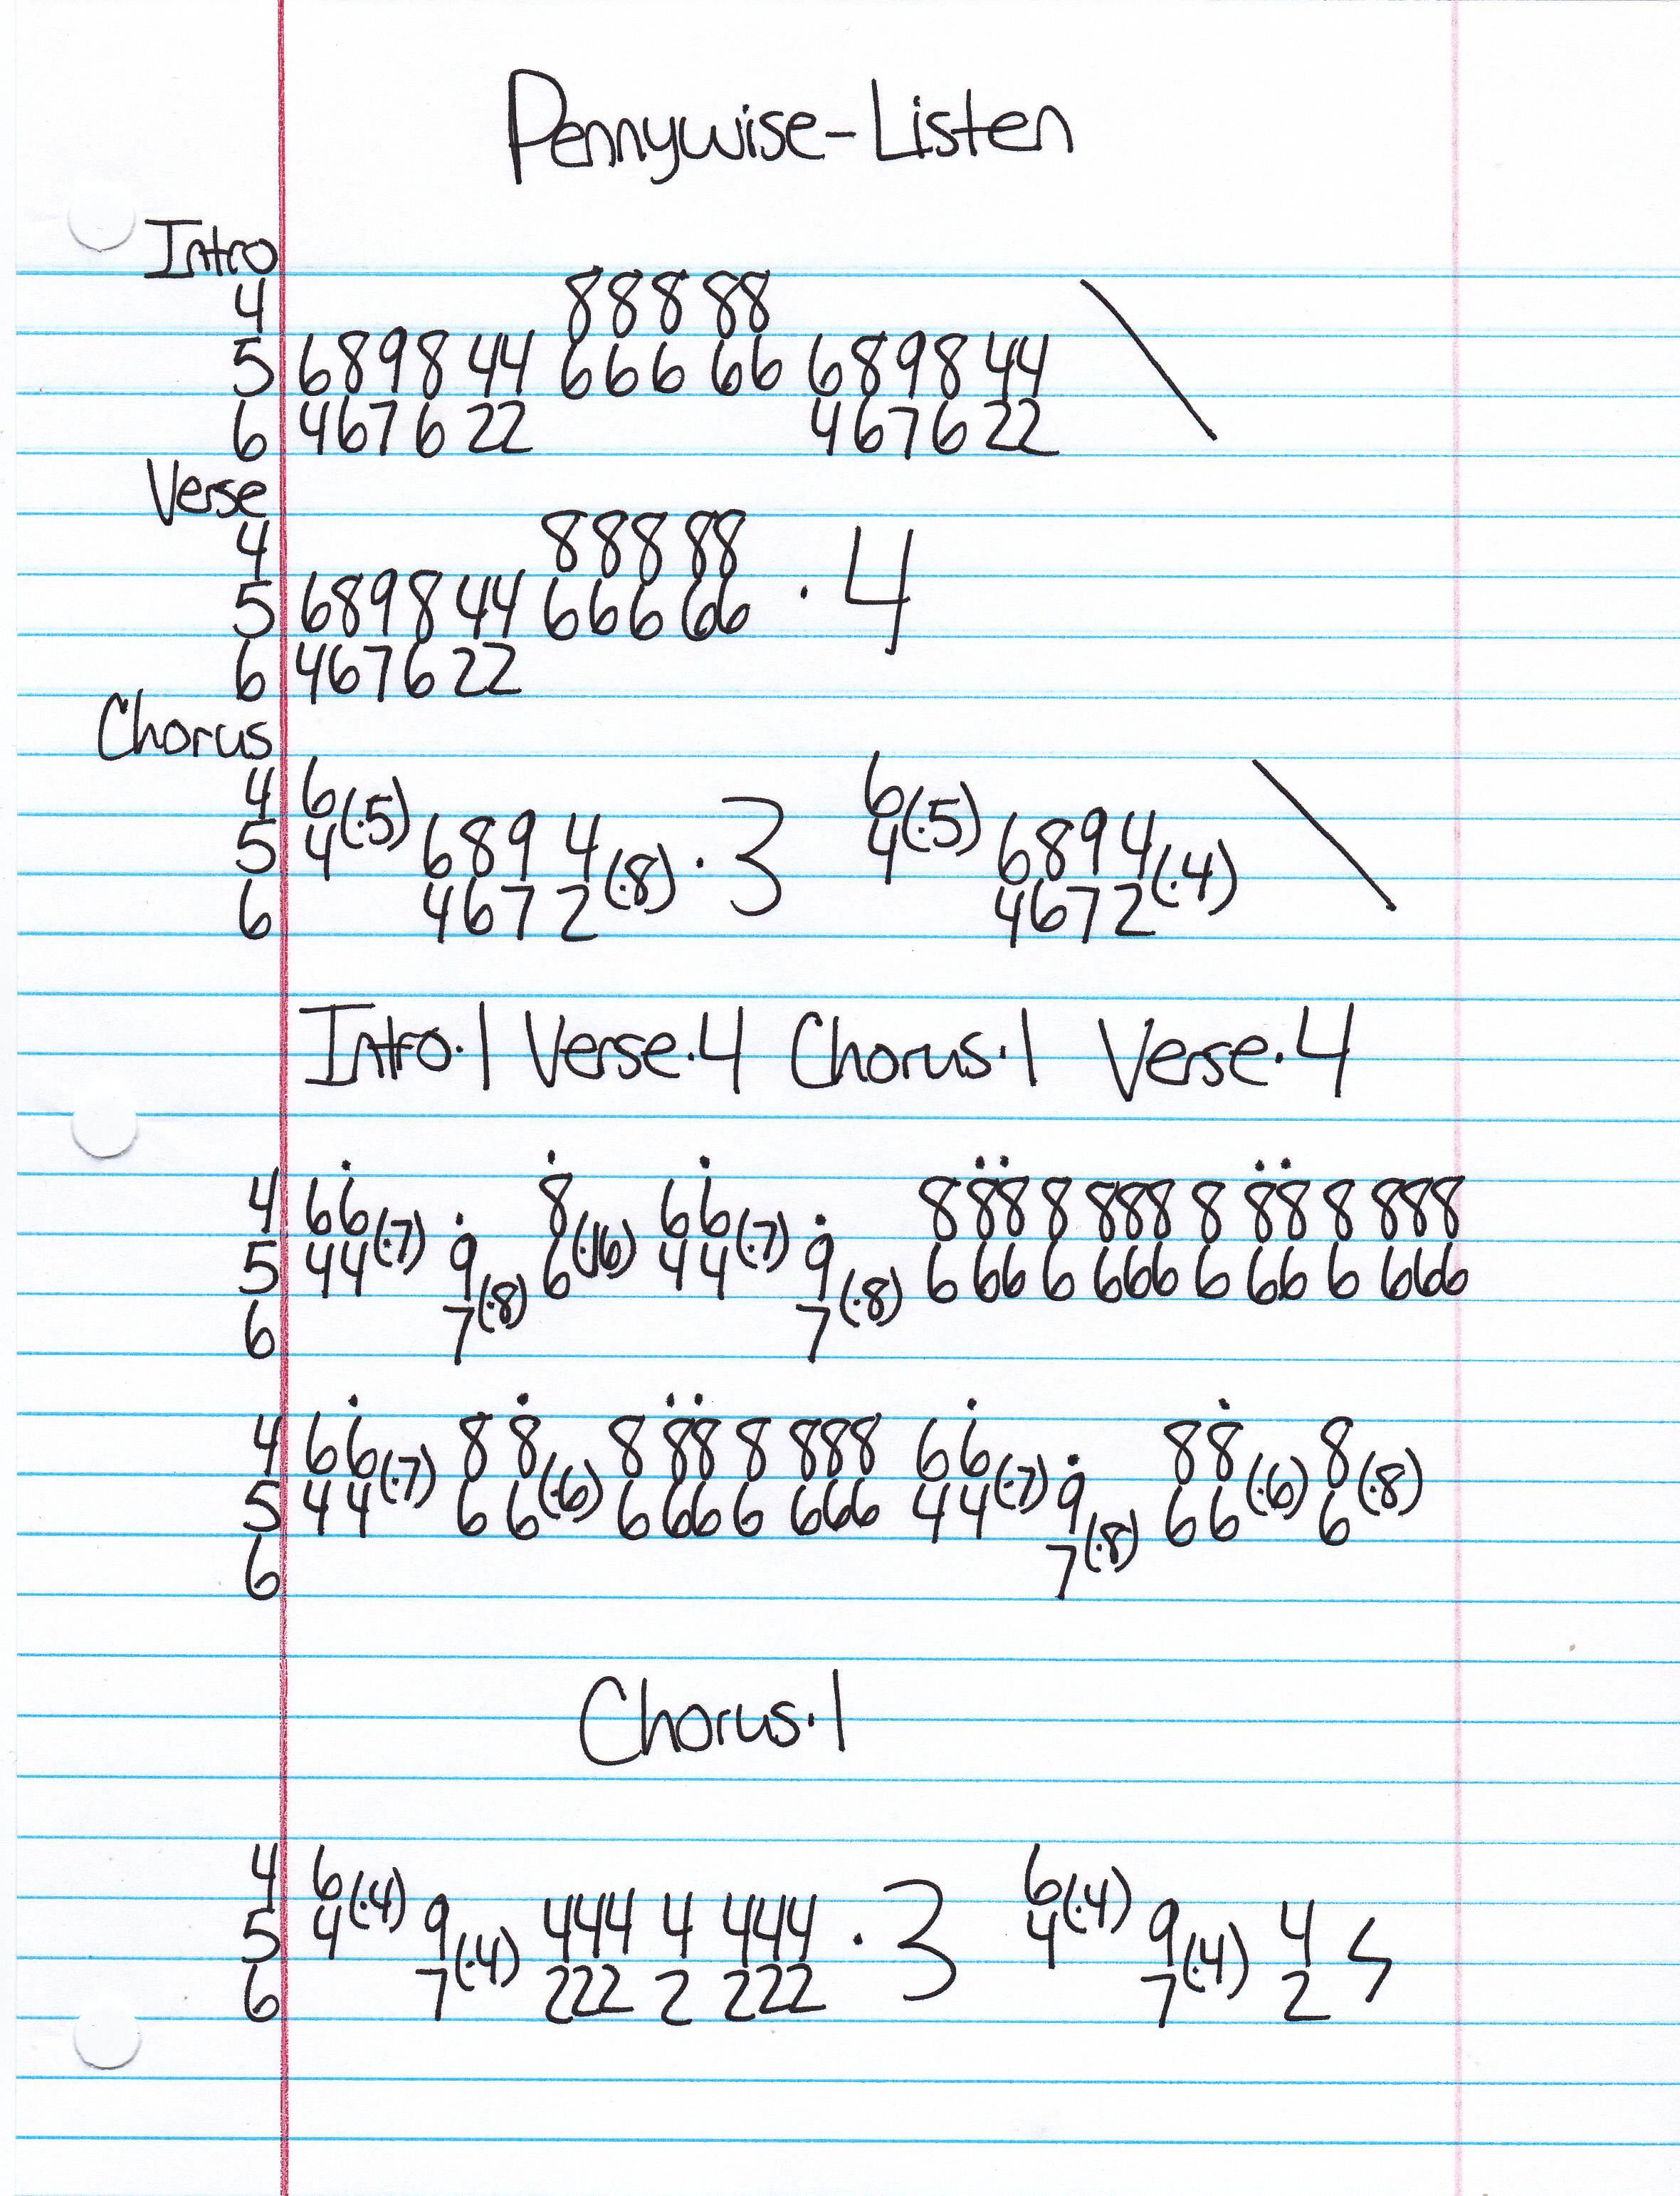 Pennywise-Listen
Intro
4 88888
5 6898 44 666 66 6898 44
6 4676 22 4676 22 \
Verse
4 888 88
5 6898 44 666 66 · 4
6 4676 22
Chorus
4 6 6
5 4(·5) 689 4 · 3 4(·5) 6894
6 467 2(·8) 4672(·4) \
Intro·1 Verse·4 Chorus·1 Verse·4
4 66̇ 8̇ 66̇ 8 8̇8̇ 8 888 8 8̇8̇ 8 888
5 44(·7) 9̇ 6(·16) 44(·7) 9̇ 6 66 6 666 6 66 6 666
6 7(·8) 7(·8)
4 66̇ 8 8̇ 8 8̇8̇ 8 888 66̇ 88̇ 8
5 44(·7) 6 6(·6) 6 66 6 666 44(·7) 9̇ 66(·6) 6(·8)
6 7(·8)
Chorus·1
4 6 6
5 4(·4) 9 444 4 444 · 3 4(·4) 9 4
6 7(·4) 222 2 222 7(·4) 2